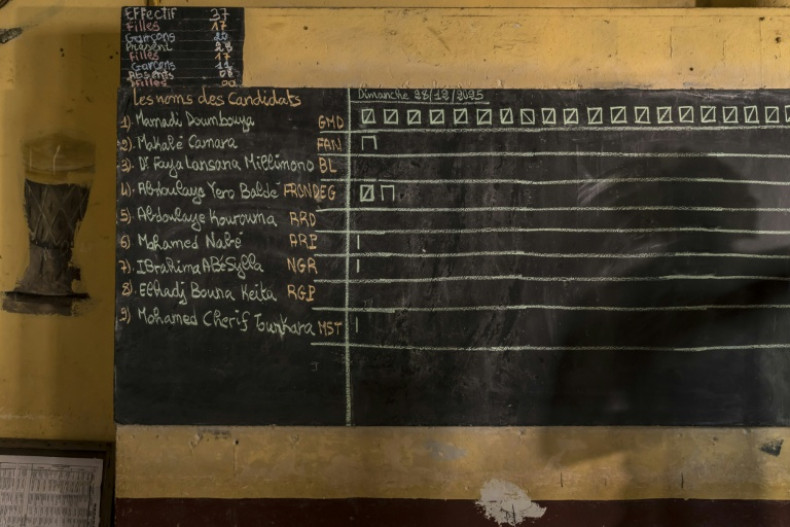 Effectif 37
Filles 17
Garçons 20
Présent
Filles
Garçons
Absents
Filles
Les noms des Candidats
Dimanche 28/12/2025
1) Mamadi Doumbouya GMD
2) Makalé Camara FAN
3) Dr Faya Lansana Millimono BL
4) Abdoulaye Yero Baldé FRONDEG
5) Abdoulaye Kourouma RRD
6) Mohamed Nabé ARP
7) IBrahima ABé Sylla NGR
8) Elhadj Bouna Keita RGP
9) Mohamed Cherif Tounkara MST